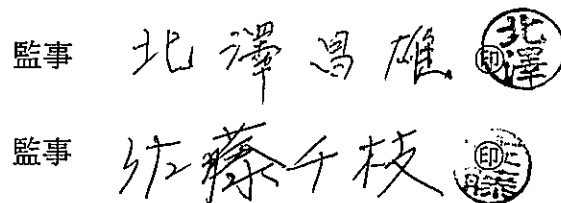 監事 北澤昌雄 ㊞ 北澤
監事 佐藤千枝 ㊞ 佐藤